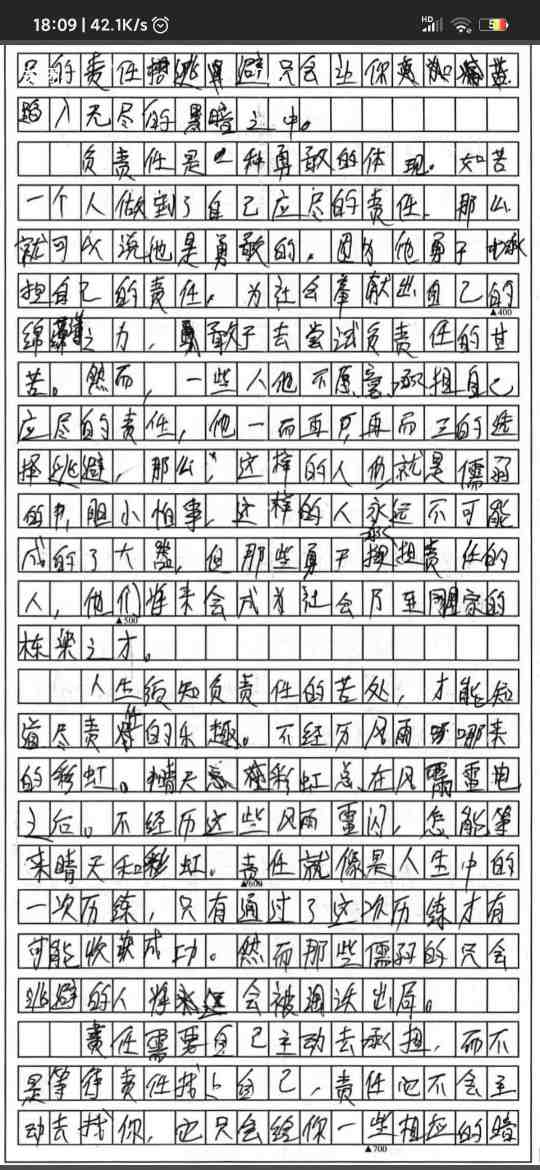 18:09 | 42.1K/s
HD
尽的责任逃避只会让你更加痛苦
陷入无尽的黑暗之中。
负责任是一种勇敢的体现。如若
一个人做到了自己应尽的责任，那么
就可以说他是勇敢的，因为他勇于承
担自己的责任，为社会奉献出自己的
▲400
绵薄之力，勇敢于去尝试负责任的甘
苦。然而，一些人他不愿意承担自己
应尽的责任，他一而再，再而三的选
择逃避，那么，这样的人他就是儒弱
的，胆小怕事，这样的人永远不可能
成的了大器，但那些勇于承担责任的
人，他们将来会成为社会乃至国家的
▲500
栋梁之才。
人生须知负责任的苦处，才能知
道尽责任的乐趣。不经历风雨哪来
的彩虹。晴天总在彩虹总在风雨雷电
之后。不经历这些风雨雷闪，怎能等
来晴天和彩虹。责任就像是人生中的
▲600
一次历练，只有通过了这次历练才有
可能收获成功。然而那些儒弱的只会
逃避的人将永远会被淘汰出局。
责任需要自己主动去承担，而不
是等待责任找上自己，责任它不会主
动去找你，它只会给你一些相应的暗
▲700